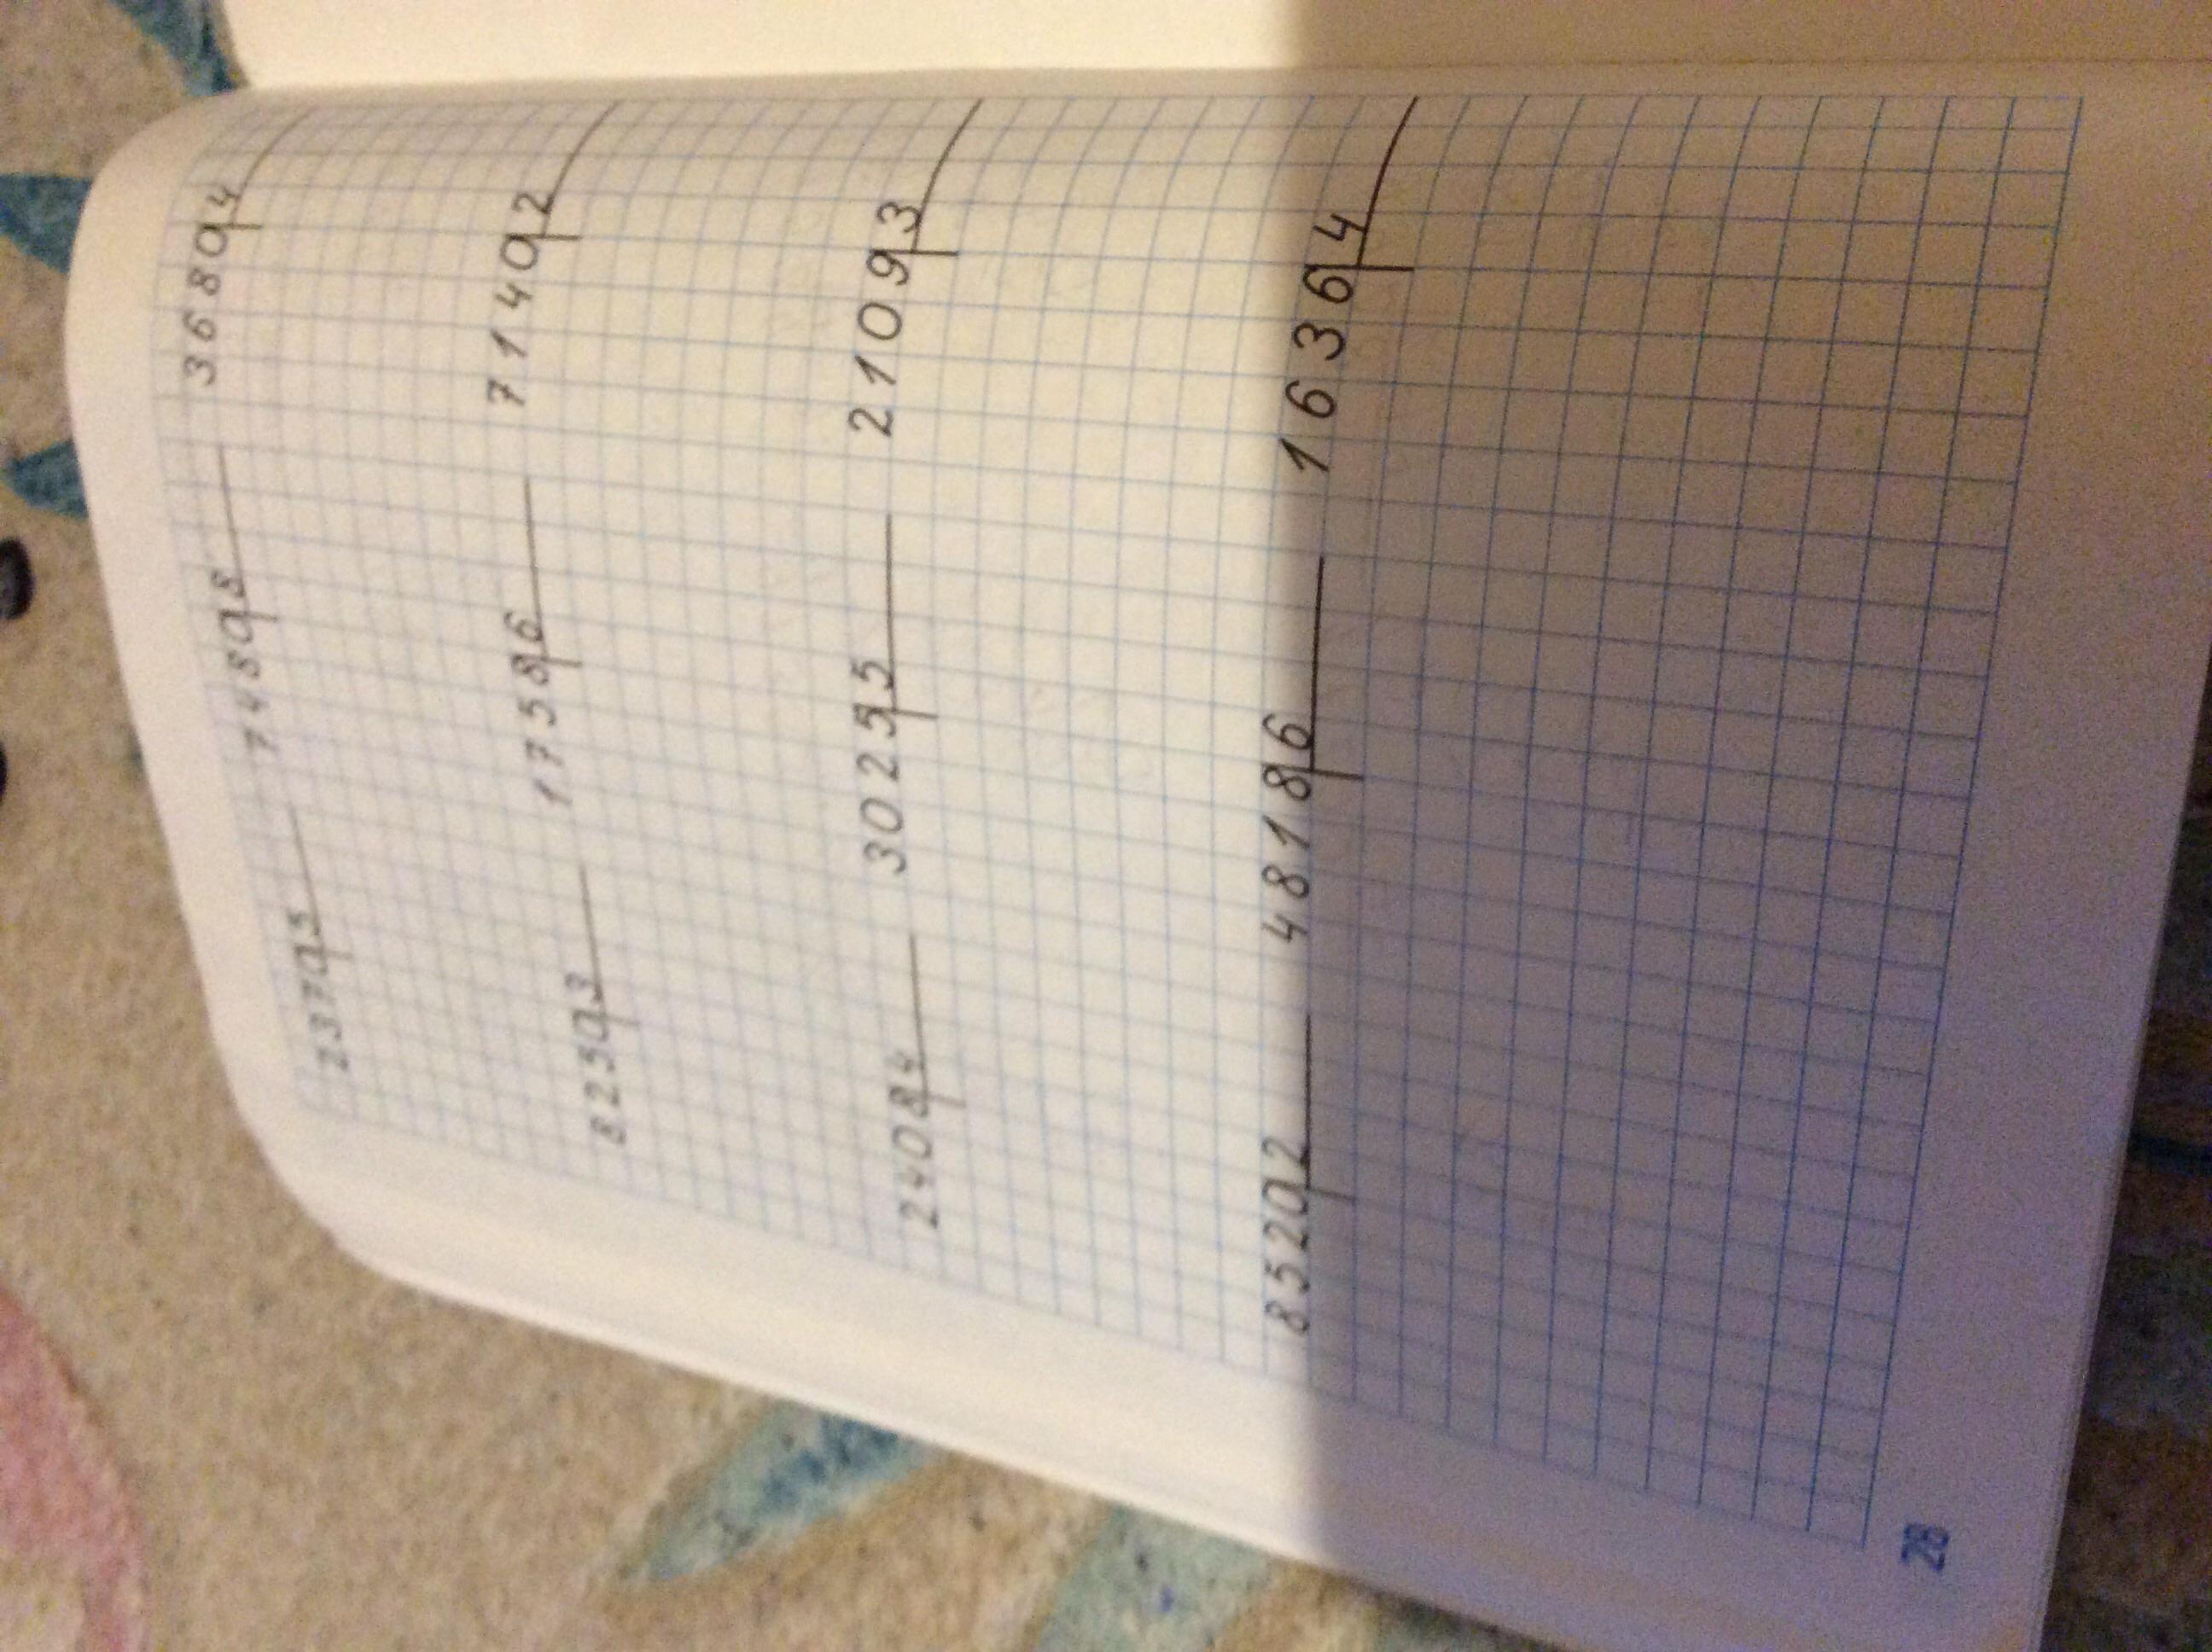 2370 5 7480 8 3680 4
8250 3 1758 6 7140 2
2408 4 3025 5 2109 3
8520 2 4818 6 1636 4
28